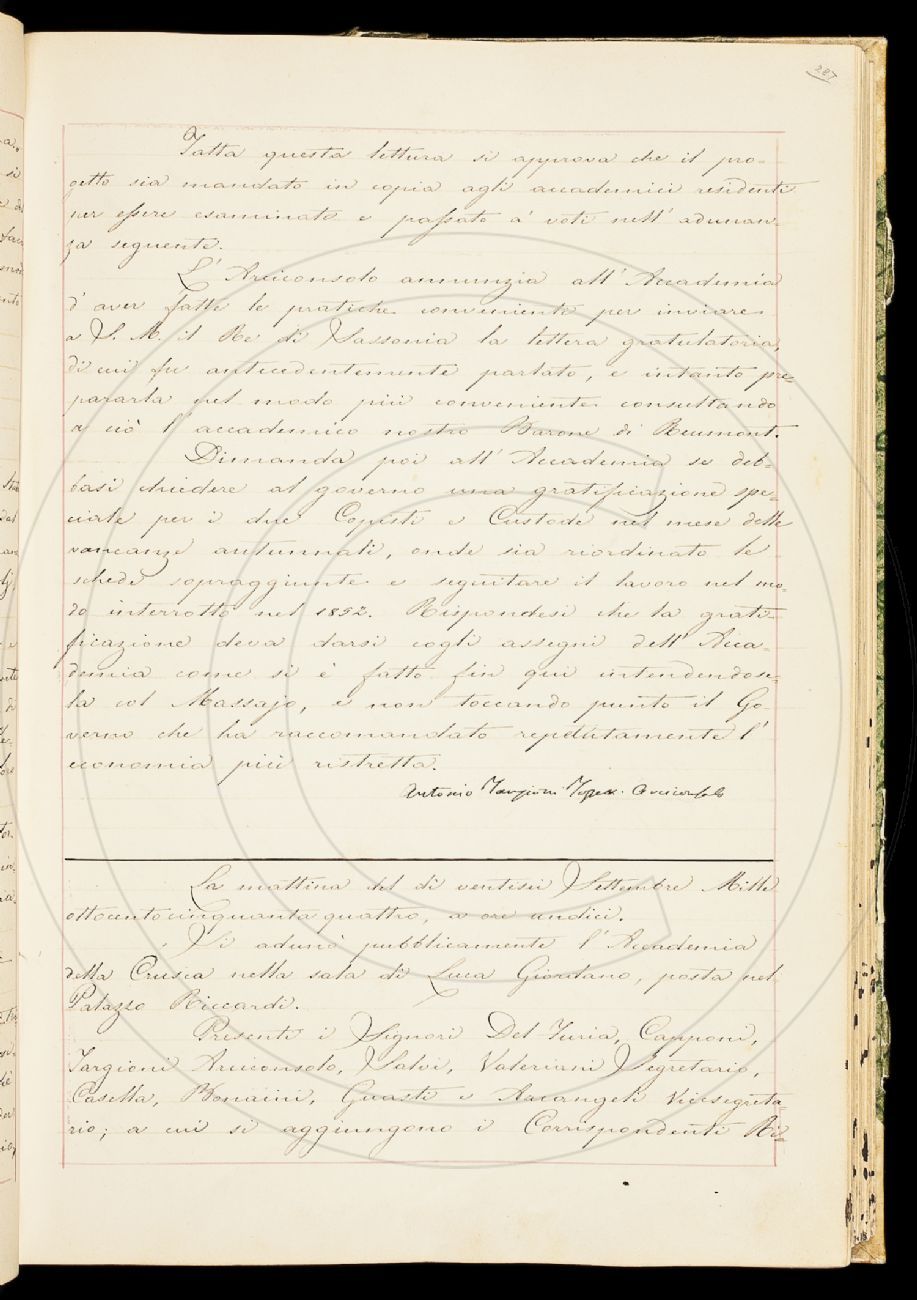 287
Fatta questa lettura si approva che il pro-
getto sia mandato in copia agli accademici residenti
per essere esaminato e passato a' voti nell' adunan-
za seguente.
L' Arciconsolo annunzia all' Accademia
d' aver fatte le pratiche convenienti per inviare
a S. M. il Re di Sassonia la lettera gratulatoria,
di cui fu antecedentemente parlato, e intanto pre-
pararla nel modo più conveniente consultando
a ciò l' accademico nostro Barone di Reumont.
Dimanda poi all' Accademia se deb-
basi chiedere al governo una gratificazione spe-
ciale per i due Copisti e Custode nel mese delle
vancanze autunnali, onde sia riordinato le
schede sopraggiunte e seguitare il lavoro nel mo-
do interrotto nel 1852. Rispondesi che la grati-
ficazione deva darsi cogli assegni dell' Acca-
demia come si è fatto fin qui intendendose-
la col Massajo, e non toccando punto il Go
verno che ha raccomandato repetutamente l'
economia più ristretta.
Antonio Targioni Tozzetti Arciconsolo
La mattina del dì ventisei Settembre Mille
ottocentocinquanta quattro, a ore undici.
Si adunò pubblicamente l' Accademia
della Crusca nella sala di Luca Giordano, posta nel
Palazzo Riccardi.
Presenti i Signori Del Furia, Capponi,
Targioni Arciconsolo, Salvi, Valeriani Segretario,
Casella, Bonaini, Guasti e Arcangeli Vicesegreta-
rio; a cui si aggiungono i Corrispondenti Ri-